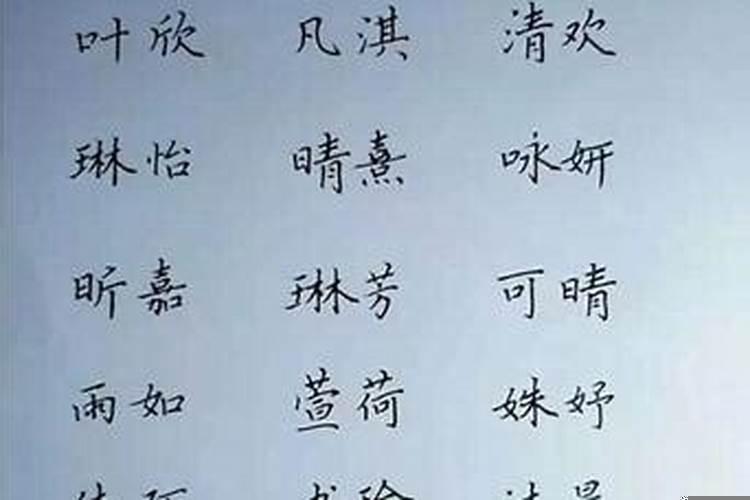 叶欣 凡淇 清欢
琳怡 晴熹 咏妍
昕嘉 琳芳 可晴
雨如 萱荷 姝妤